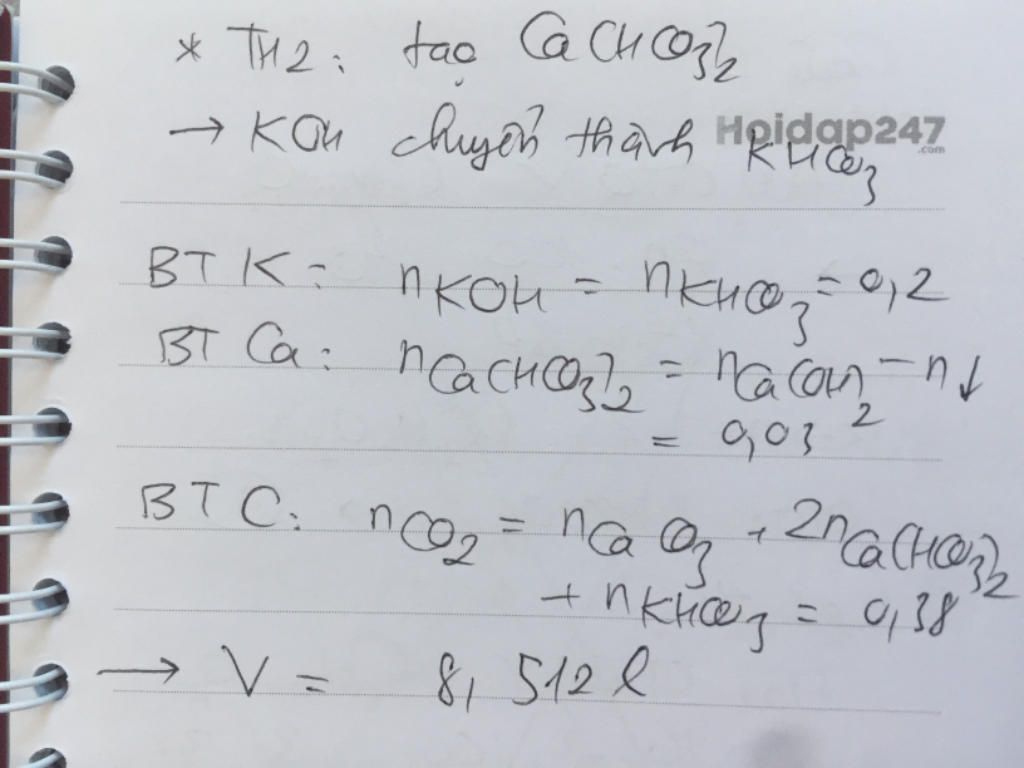 * TH2: tạo Ca(HCO3)2
→ KOH chuyển thành KHCO3
Hoidap247
.com
BT K: nKOH = nKHCO3 = 0,2
BT Ca: nCa(HCO3)2 = nCa(OH)2 - n↓
= 0,03
BT C: nCO2 = nCaCO3 + 2nCa(HCO3)2
+ nKHCO3 = 0,38
→ V = 8,512 l